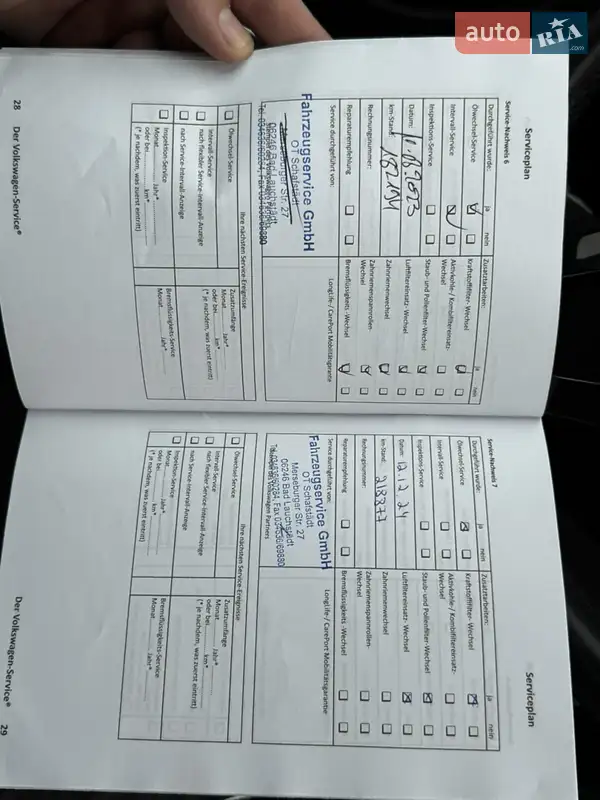 auto RIA.com
Serviceplan
Service-Nachweis 6
Durchgeführt wurde: ja nein
Ölwechsel-Service
Intervall-Service
Inspektions-Service
Datum:
km-Stand: 182194
Rechnungsnummer:
Reparaturempfehlung
Service durchgeführt von:
Zusatzarbeiten: ja nein
Kraftstofffilter- Wechsel
Aktivkohle-/ Kombifiltereinsatz-
Wechsel
Staub- und Pollenfilter-Wechsel
Luftfiltereinsatz- Wechsel
Zahnriemenwechsel
Zahnriemenspannrollen-
Wechsel
Bremsflüssigkeits -Wechsel
LongLife-/ CarePort Mobilitätsgarantie
Fahrzeugservice GmbH
OT Schafstädt
Merseburger Str. 27
06246 Bad Lauchstädt
Ihre nächsten Service-Ereignisse
Ölwechsel-Service
Intervall-Service
nach flexibler Service-Intervall-Anzeige
nach Service-Intervall-Anzeige
Inspektion-Service
Monat Jahr*
oder bei km*
(* je nachdem, was zuerst eintritt)
Zusatzumfänge
Monat Jahr*
oder bei km*
(* je nachdem, was zuerst eintritt)
Bremsflüssigkeits-Service
Monat Jahr*
28 Der Volkswagen-Service®
Serviceplan
Service-Nachweis 7
Durchgeführt wurde: ja nein
Ölwechsel-Service
Intervall-Service
Inspektions-Service
Datum: 12.12.24
km-Stand: 218377
Rechnungsnummer:
Reparaturempfehlung
Service durchgeführt von:
Zusatzarbeiten: ja nein
Kraftstofffilter- Wechsel
Aktivkohle-/ Kombifiltereinsatz-
Wechsel
Staub- und Pollenfilter-Wechsel
Luftfiltereinsatz- Wechsel
Zahnriemenwechsel
Zahnriemenspannrollen-
Wechsel
Bremsflüssigkeits -Wechsel
LongLife-/ CarePort Mobilitätsgarantie
Fahrzeugservice GmbH
OT Schafstädt
Merseburger Str. 27
06246 Bad Lauchstädt
Tel. 034636/60284, Fax 034636/69880
Ihre nächsten Service-Ereignisse
Ölwechsel-Service
Intervall-Service
nach flexibler Service-Intervall-Anzeige
nach Service-Intervall-Anzeige
Inspektion-Service
Monat Jahr*
oder bei km*
(* je nachdem, was zuerst eintritt)
Zusatzumfänge
Monat Jahr*
oder bei km*
(* je nachdem, was zuerst eintritt)
Bremsflüssigkeits-Service
Monat Jahr*
Der Volkswagen-Service® 29